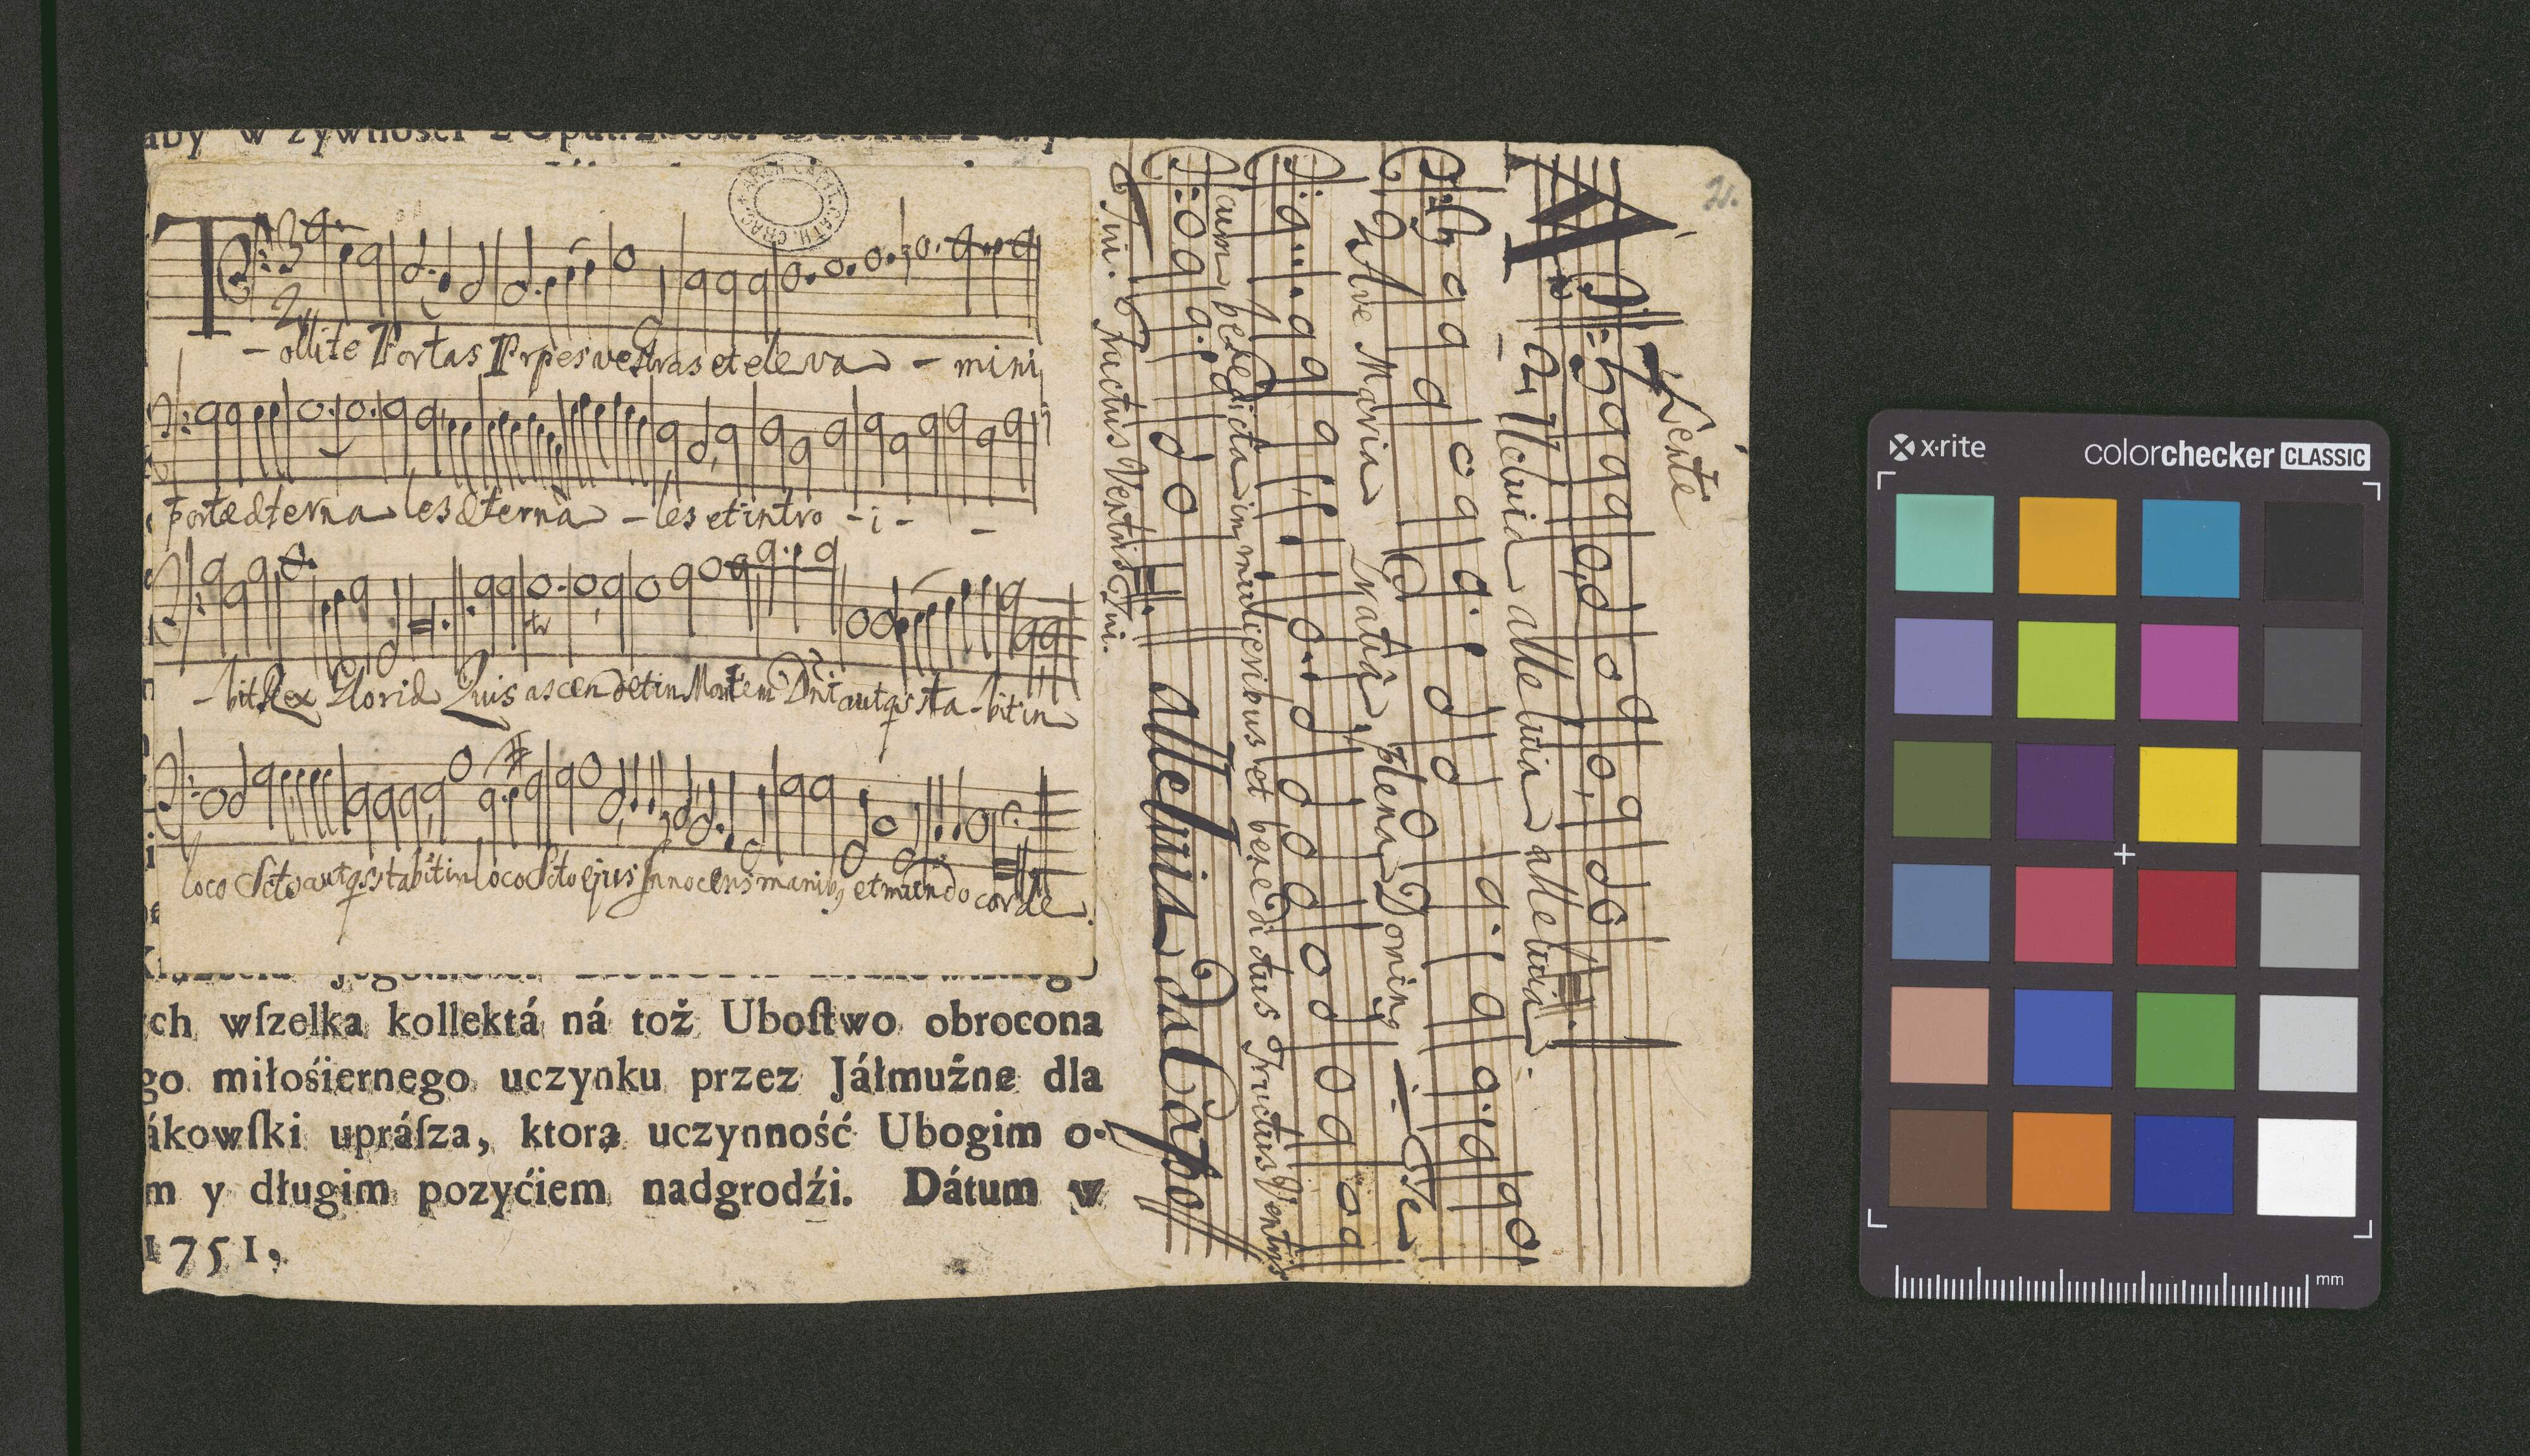 aby w żywnośći
T
- ollite Portas Prpes vestras et eleva - mini
portæ æterna les æterna - les et intro - i - -
- bit Rex Gloriæ Quis ascendet in Montem Dni aut qs sta - bit in
loco Scto aut qs stabit in loco Scto ejus Innocens manibq et mundo corde.
ch wſzelka kollektá ná toż Uboſtwo obrocona
go miłośiernego uczynku przez Jáłmużne dla
ákowſki upráſza, ktora uczynność Ubogim o-
m y długim pozyćiem nadgrodźi. Dátum w
1751,
21.
Lente
Alleluia alleluia alleluia.
Ave Maria Gratiâ plena Dominq - Te
cum benedicta in mulieribus et benedictus Fructus Ventris
Tui. Fructus Ventris Tui.
alleluia da Capo
x·rite
colorchecker CLASSIC
mm